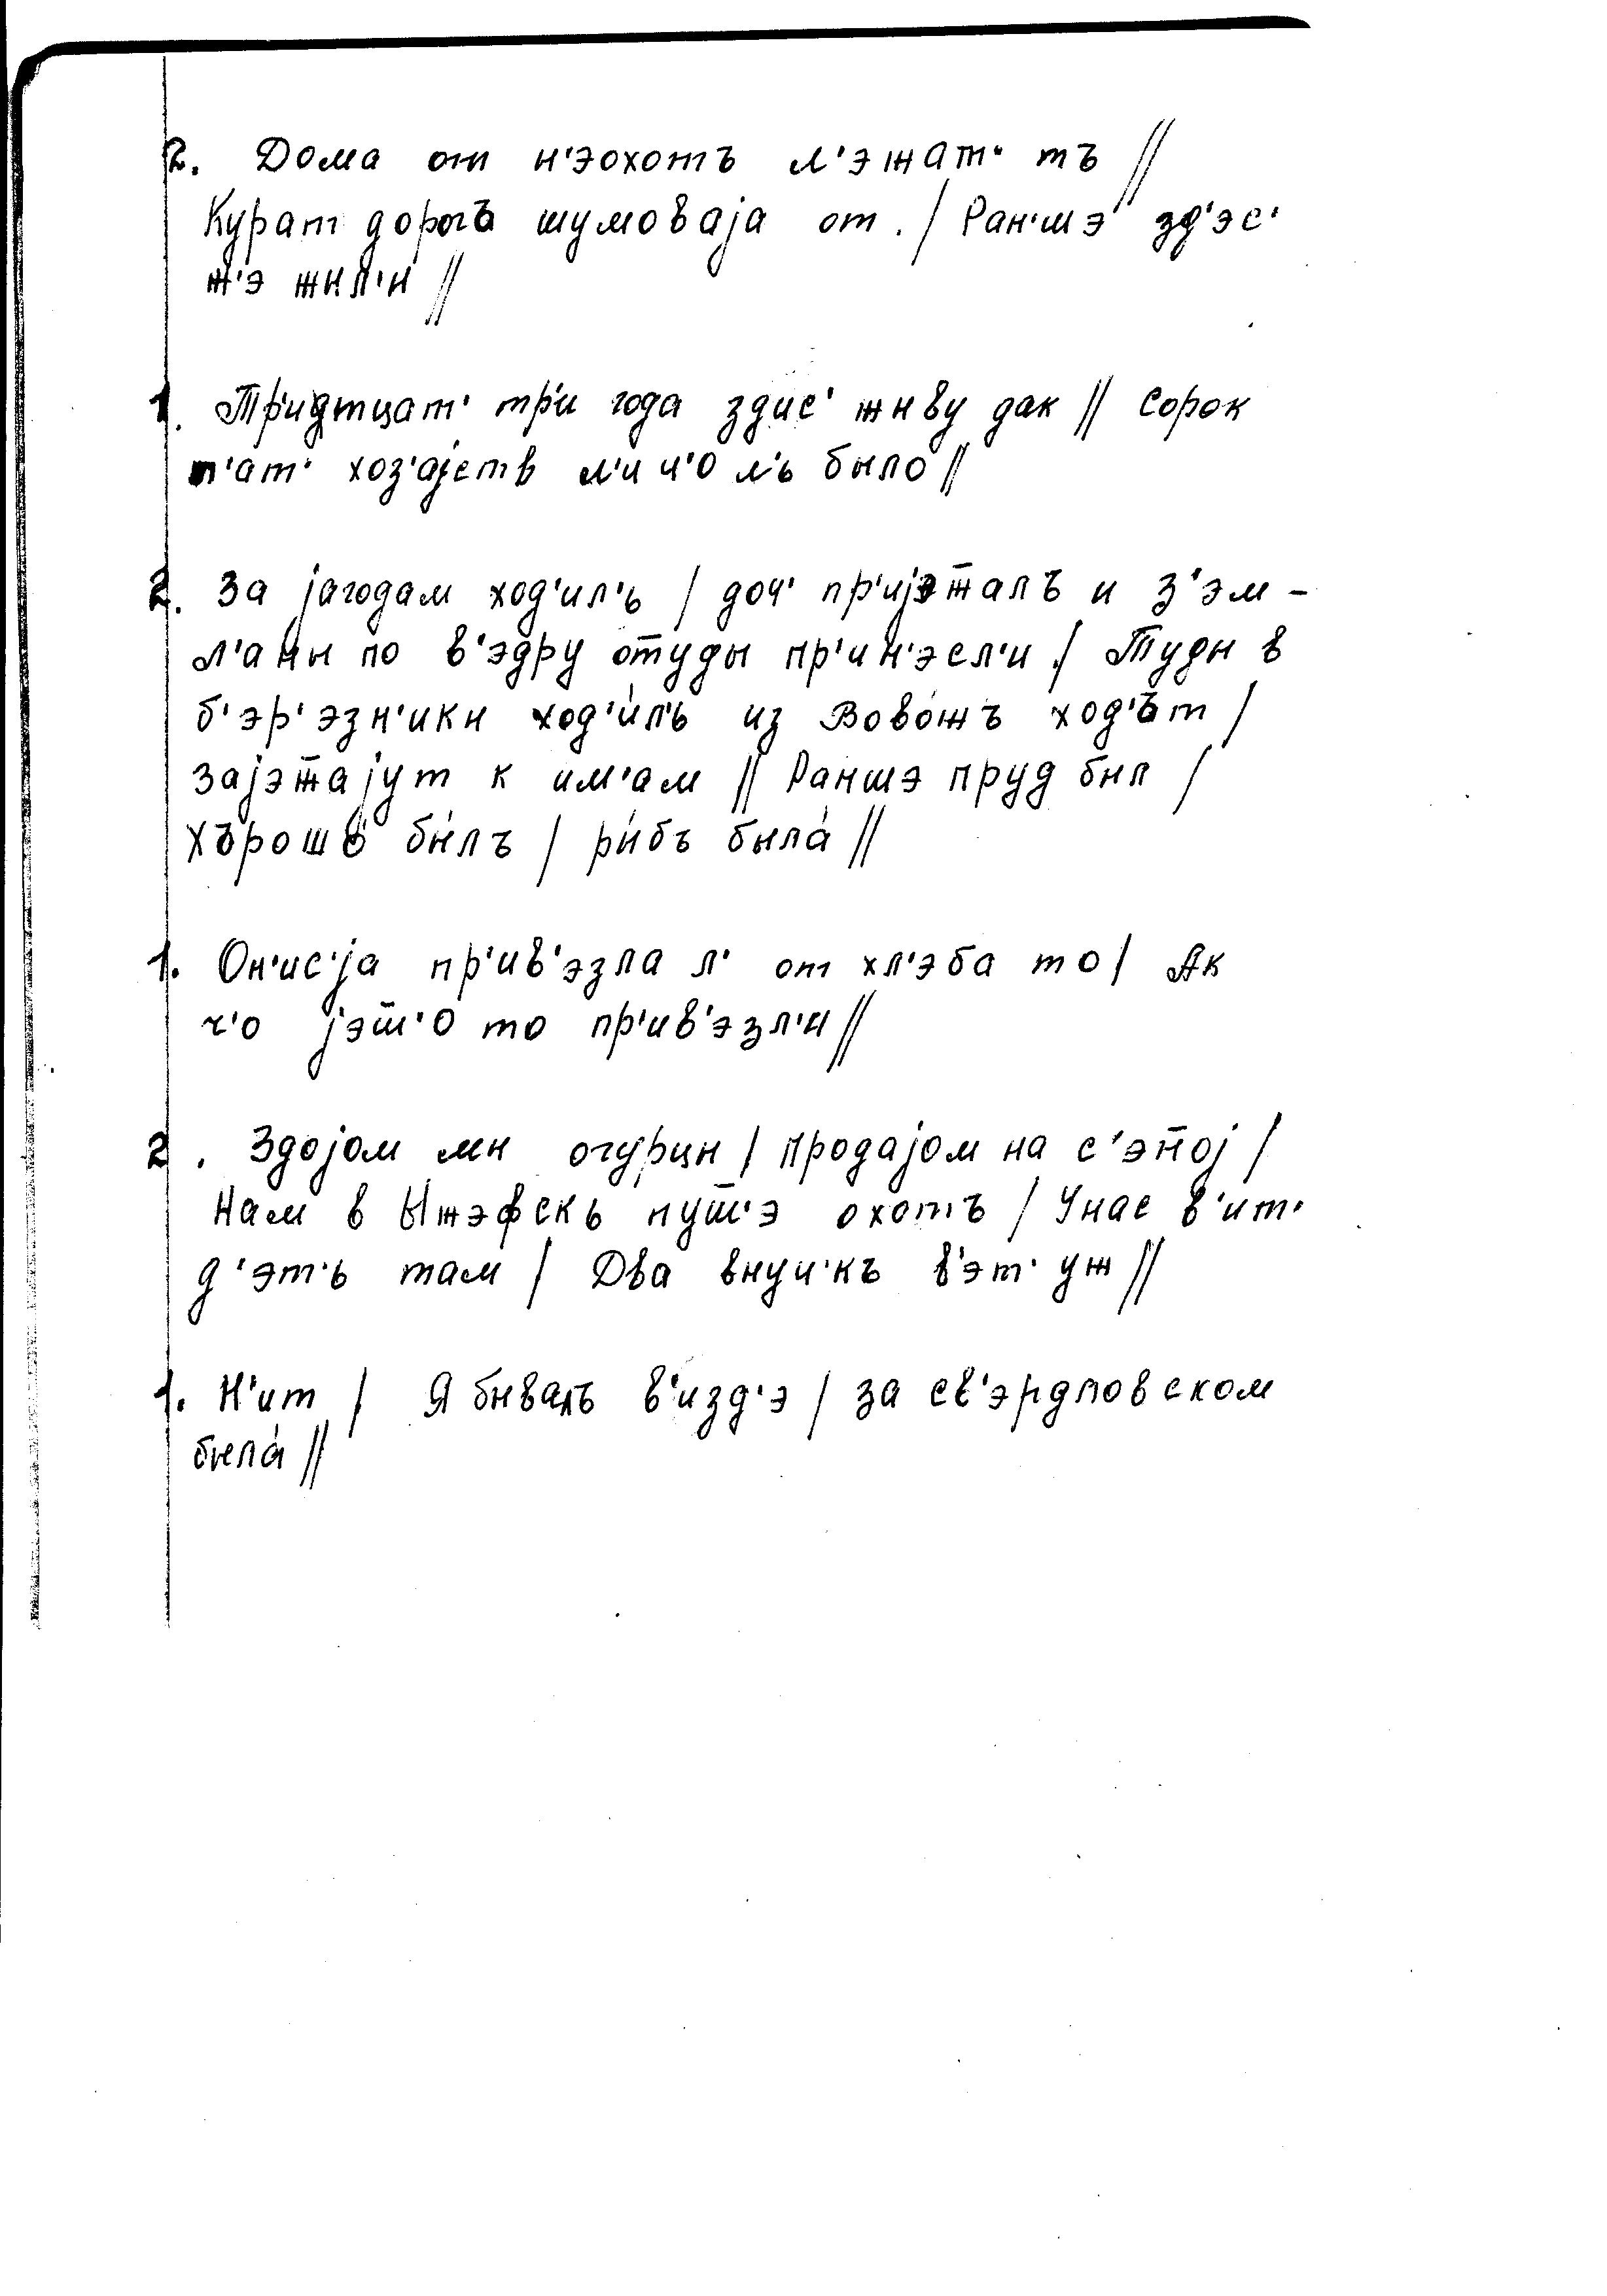 2. Дома от н'эохотъ л'эжат' тъ //
Курат дорога шумоваjа от . / Ран'шэ зд'эс'
ж'э жыл'и //
1. Тр'идтцат' тр'и года здис' жыву дак // Сорок
п'ат' хоз'аjств л'и ч'о л'ь было //
2. За jагодам ход'ил'ь / доч' пр'иjэж̄алъ и з'эм -
л'аны по в'эдру от̄уды пр'ин'эсл'и / Туды в
б'эр'эзн'ики ход'и́л'ь из Вово́жъ ход'ъ́т /
заjэж̄аjут к им'ам // Раншэ пруд был /
хърошо́ бы́лъ / ры́бъ была́ //
1. Он'ис'jа пр'ив'эзла л' от хл'эба то / Ак
ч'о jэш̄'о то пр'ив'эзл'и //
2. Здоjом мы огурцы / продаjом на с'эп̄оj /
Нам в Ыжэфскь пуш̄'э охотъ / У нас в'ит'
д'эт'ь там / Два внуч'къ в'эт' уж //
1. Н'ит / Я бывалъ в'изд'э / за св'эрдловском
была́ //